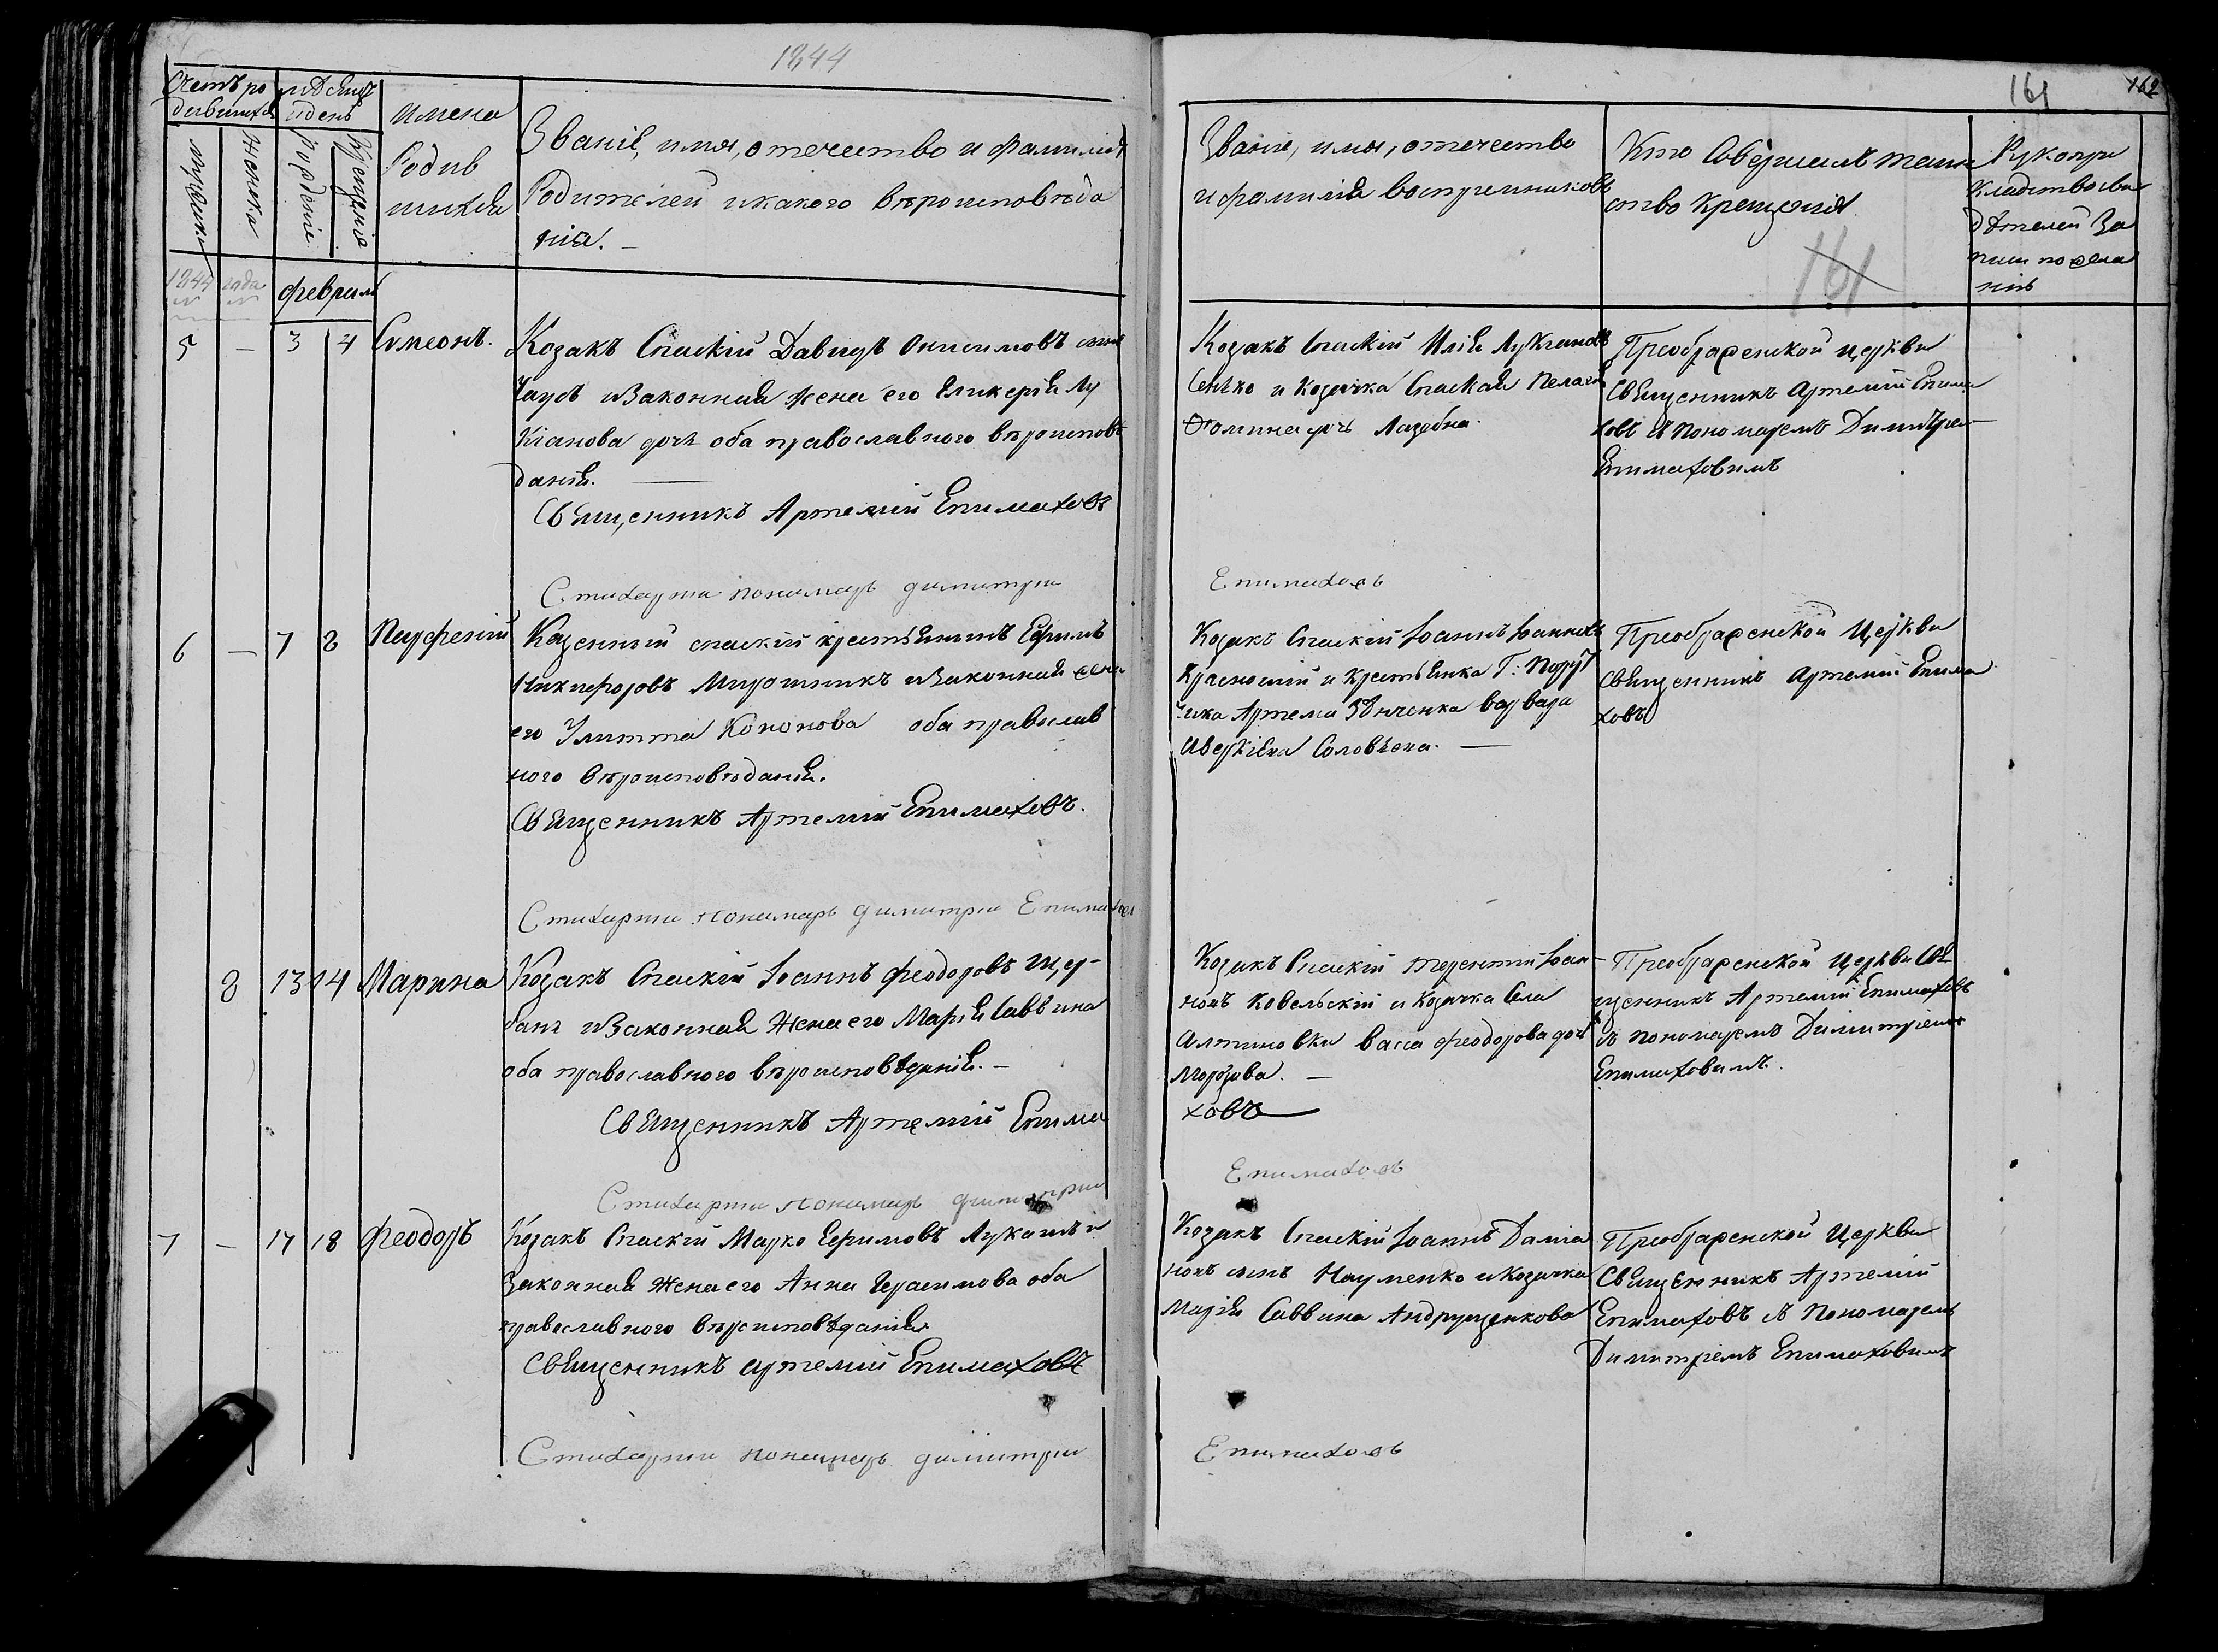 1844
161
162
Счетъ ро
дившихся
мѣсяцъ
и день
мужеска
женска
рожденіе
крещеніе
имена
Родив
шихся
Званіе, имя, отечество и фамилія
Родителей и какого вѣроисповѣда
нія. —
Званіе, имя, отечество
и фамилія воспріемниковъ
Кто совершалъ таин
ство крещенія
161
Рукопри
кладство сви
дѣтелей за
писи по жела
нію
1844 года
февраля
5 — 3 4 Симеонъ.
Козакъ Спаскій Давидъ Онисимовъ сынъ
Чаусъ и законная жена его Гликерія Лу
кіанова дочь оба православного вѣроисповѣ
данія. —
Священникъ Артемій Епимаховъ
Стихарни пономарь димитри
Козакъ Спаскій Илія Лукіановъ
Сенько и козачка Спаская Пелагія
Ѳомина дочь Лазебна.
Преображенской церкви
Священникъ Артемій Епима
ховъ съ пономаремъ Димитріе—
Епимаховимъ
Епимаховъ
6 — 7 8 Парфеній
Казенный спаскій крестьянинъ Ефимъ
Никифоровъ Мирошникъ и законная жена
его Улитта Кононова оба православ
ного вѣроисповѣданія.
Священникъ Артемій Епимаховъ.
Стихарни пономарь димитри Епимахов
Козакъ Спаскій Іоаннъ Іоанновъ
и крестьянка Г: Поруч
чика Артема Зѣнченка варвара
Аверкіева Соловьева. —
Преображенской Церкви
священникъ Артемій Епима
ховъ
8 13 14 Марина
Козакъ Спаскій Іоаннъ Феодоровъ Щер-
банъ и законная жена его Марія Саввина
оба православного вѣроисповѣданія. —
Священникъ Артемій Епима
Стихарни пономарь димитрии
Козакъ Спаскій Терентій Іоан-
новъ Ковельскій и козачка Села
Алтиновки васса феодорова дочь
Морозова. —
ховъ
Епимаховъ
Преображенской церкви Свя
щенникъ Артемій Епимаховъ
съ пономаремъ Димитріемъ
Епимаховимъ.
7 — 17 18 Феодоръ
Козакъ Спаскій Марко Ефимовъ Лукашъ и
законная жена его Анна Герасимова оба
православного вѣроисповѣданія
Священникъ Артемій Епимаховъ
Стихарни пономарь димитри
Козакъ Спаскій Іоаннъ Даміа
новъ сынъ Науменко и козачка
Марія Саввина Андрущенкова
Преображенской Церкви
Священникъ Артемій
Епимаховъ съ Пономаремъ
Димитріемъ Епимаховимъ
Епимаховъ